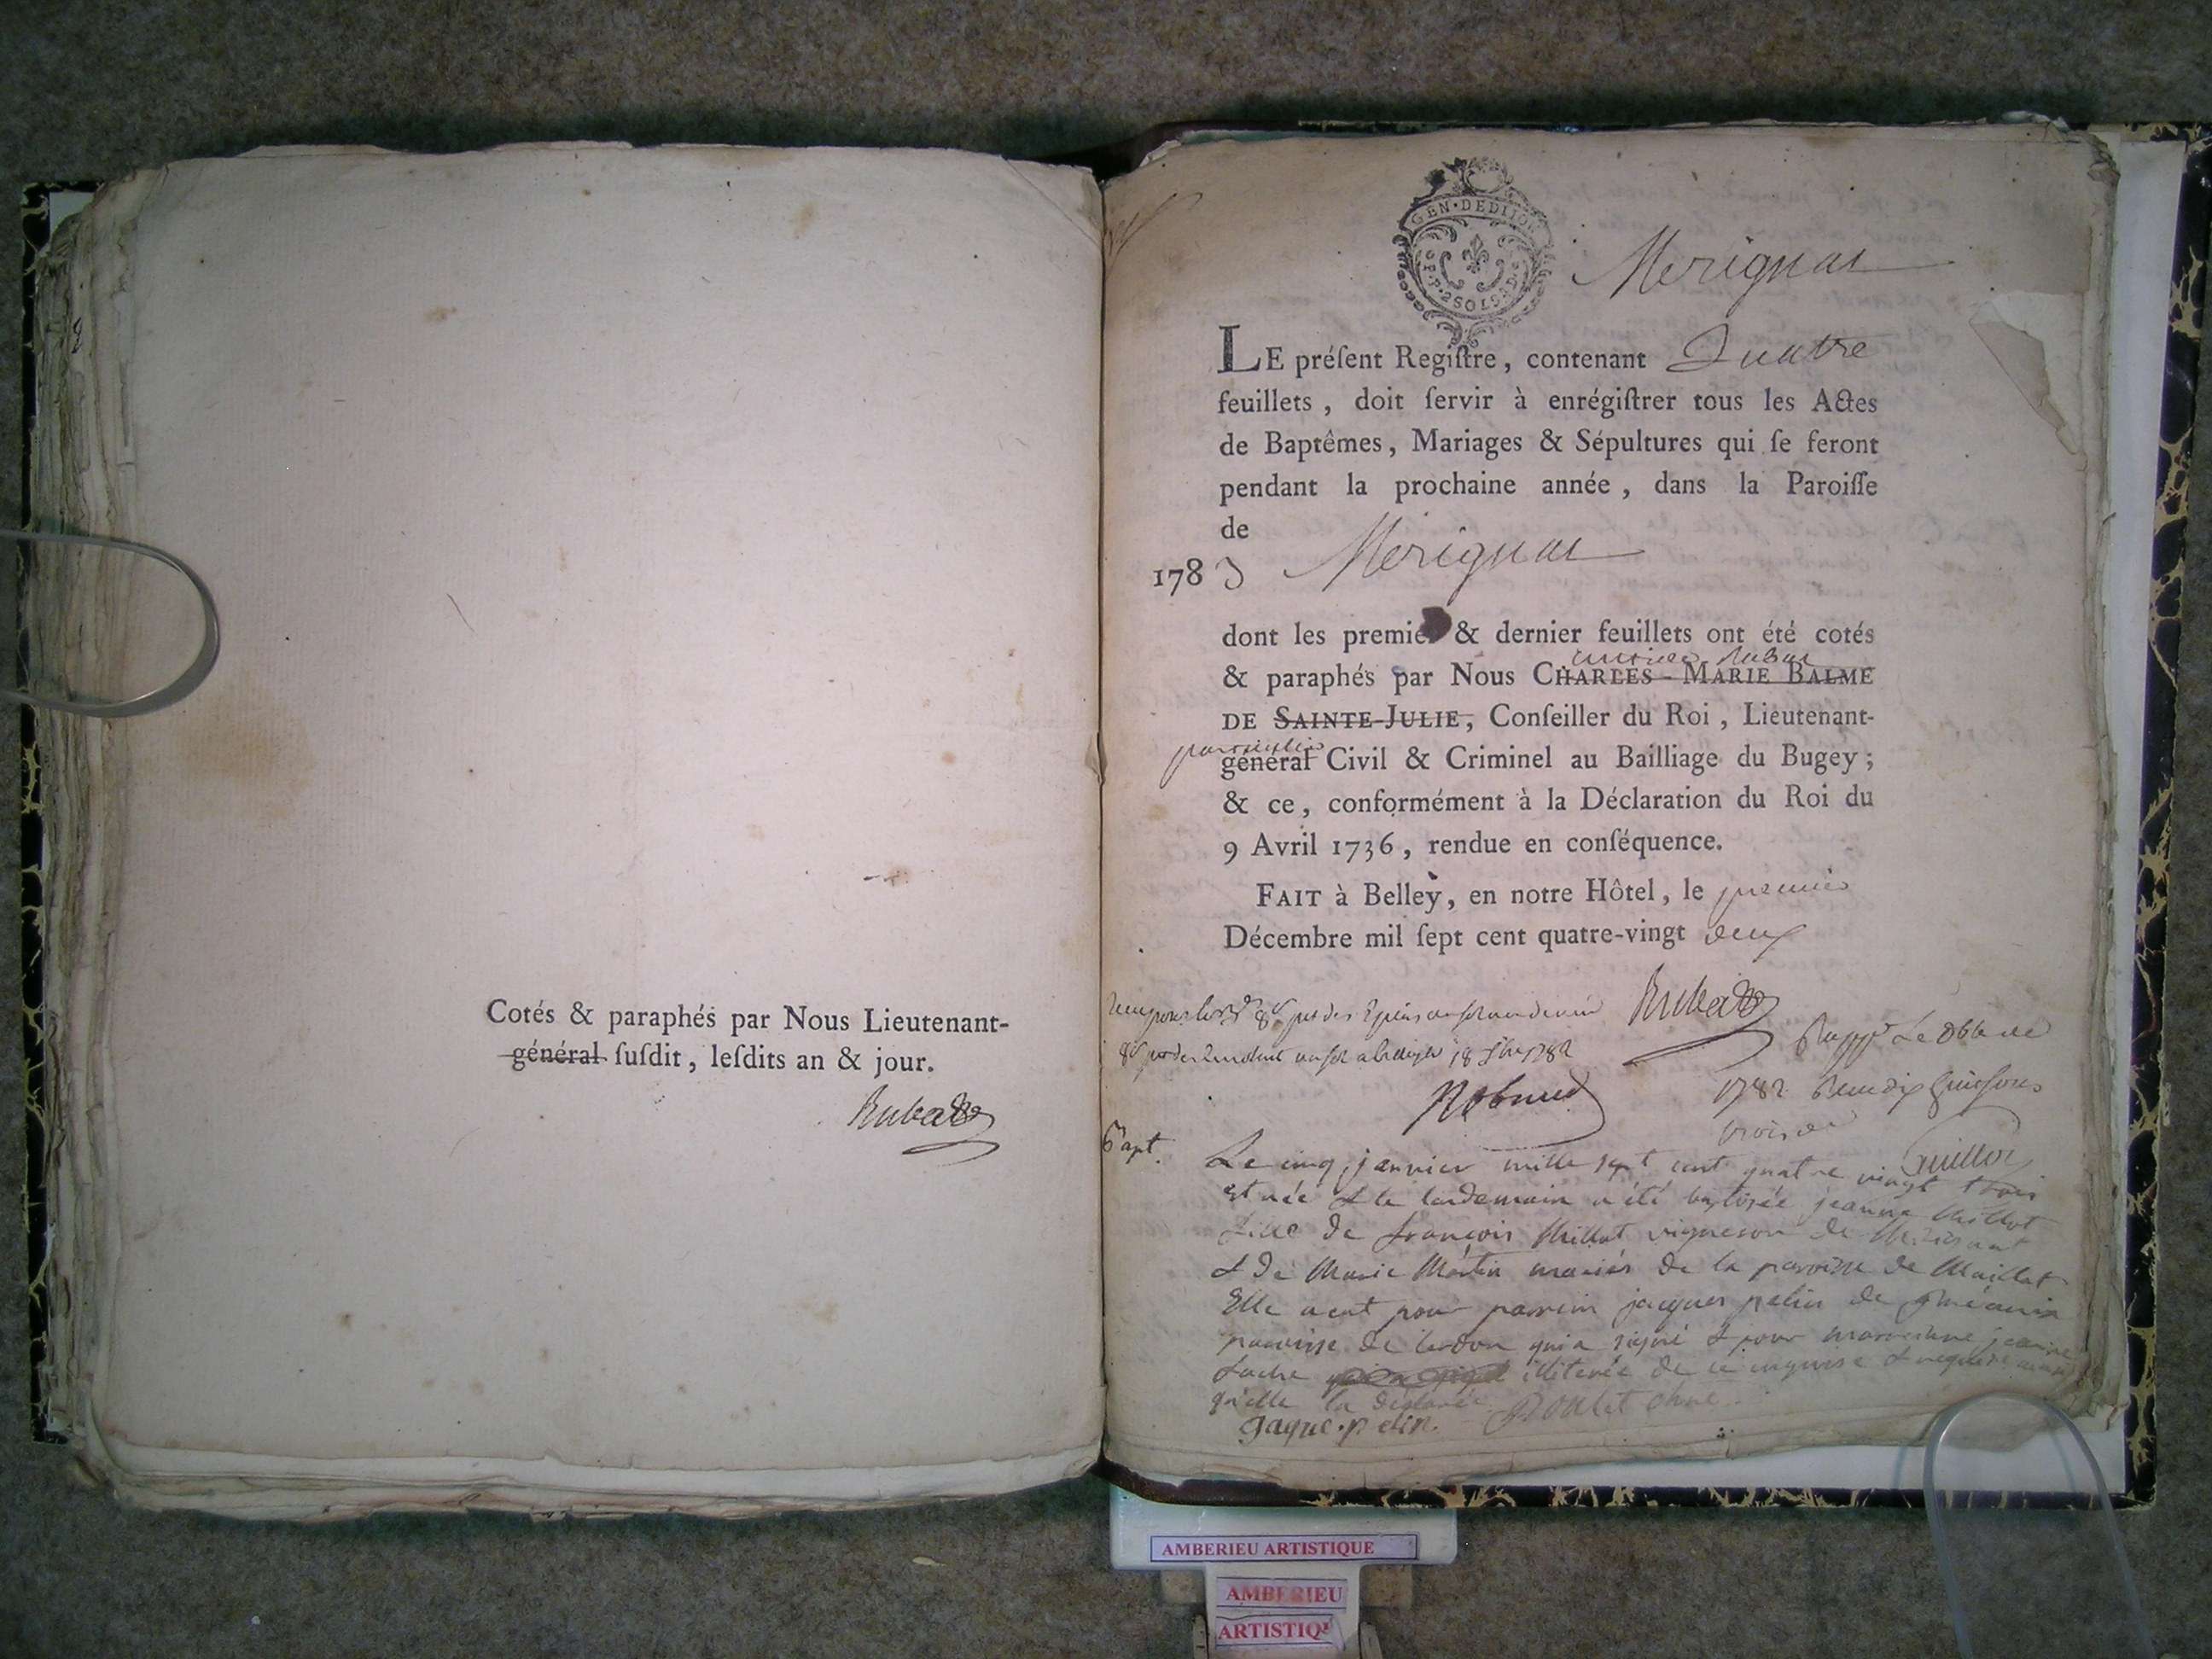 Cotés & paraphés par Nous Lieutenant-
général ſuſdit, leſdits an & jour.
GEN·DEDIJON
2SOLS
Merignat
LE préſent Regiſtre, contenant Quatre
feuillets, doit ſervir à enrégiſtrer tous les Actes
de Baptêmes, Mariages & Sépultures qui ſe feront
pendant la prochaine année, dans la Paroiſſe
de
1783 Merignat
dont les premier & dernier feuillets ont été cotés
& paraphés par Nous CHARLES-MARIE BALME
DE SAINTE-JULIE, Conſeiller du Roi, Lieutenant-
particulier
général Civil & Criminel au Bailliage du Bugey;
& ce, conformément à la Déclaration du Roi du
9 Avril 1736, rendue en conſéquence.
FAIT à Belley, en notre Hôtel, le premier
Décembre mil ſept cent quatre-vingt deux
1782
Bapt.
Le cinq janvier mille sept cent quatre vingt trois
est née & le lendemain a été baptisée jeanne Millot
fille de françois Millot vigneron de
& de Marie Martin mariés de la paroisse de Maillat
Elle a eut pour parrein jacques pelin de
paroisse de cerdon qui a signé & pour marreinne jeanne
illiterée de ce enquise & requise
qu'elle la déclarée
jaque·pelin.
AMBERIEU ARTISTIQUE
AMBERIEU
ARTISTIQ